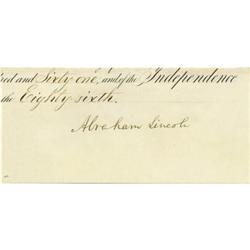 and Sixty one, and of the Independence
the Eighty sixth.
Abraham Lincoln